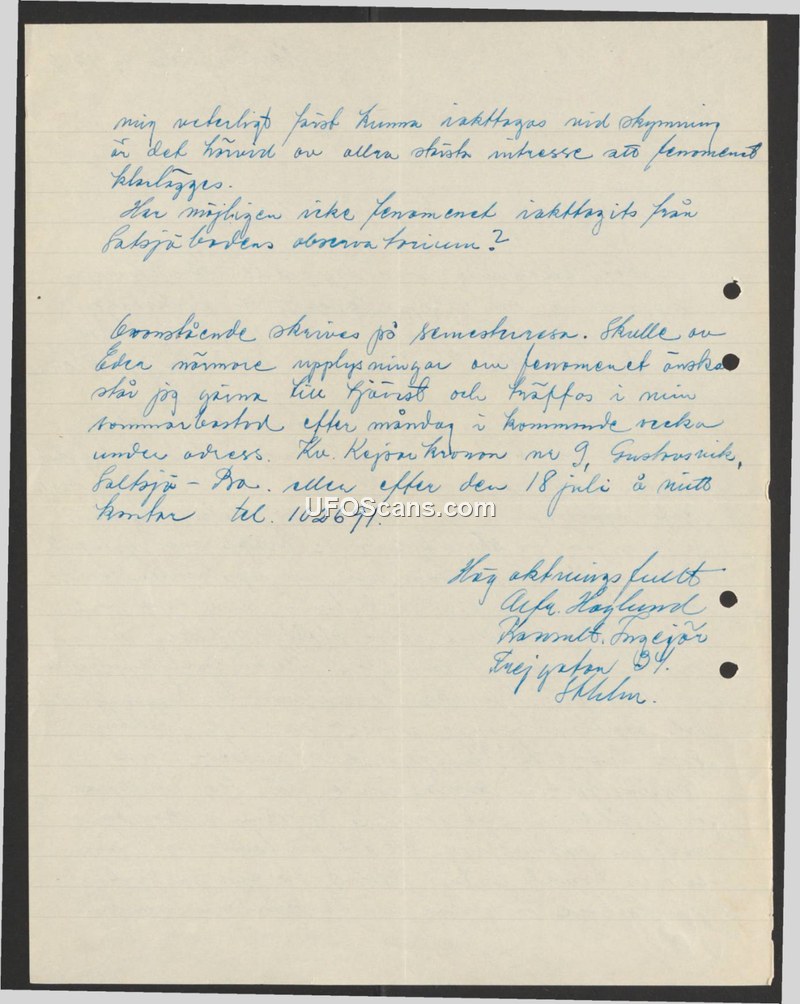 mig veterligt först kunna iakttagas vid skymning
är det härvid av allra största intresse att fenomenet
klarlägges.
Har möjligen icke fenomenet iakttagits från
Saltsjöbadens observatorium?
Ovanstående skrives på semesterresa. Skulle av
Eder närmare upplysningar om fenomenet önskas
står jag gärna till tjänst och träffas i min
sommarbostad efter måndag i kommande vecka
under adress. Kv. Kejsarkronan nr 9, Gustavsvik,
Saltsjö-Boo. eller efter den 18 juli å mitt
kontor tel.
UFOScans.com
Högaktningsfullt
Alfr. Haglund
Konsult. Ingejör
Frejgatan 34.
Sthlm.